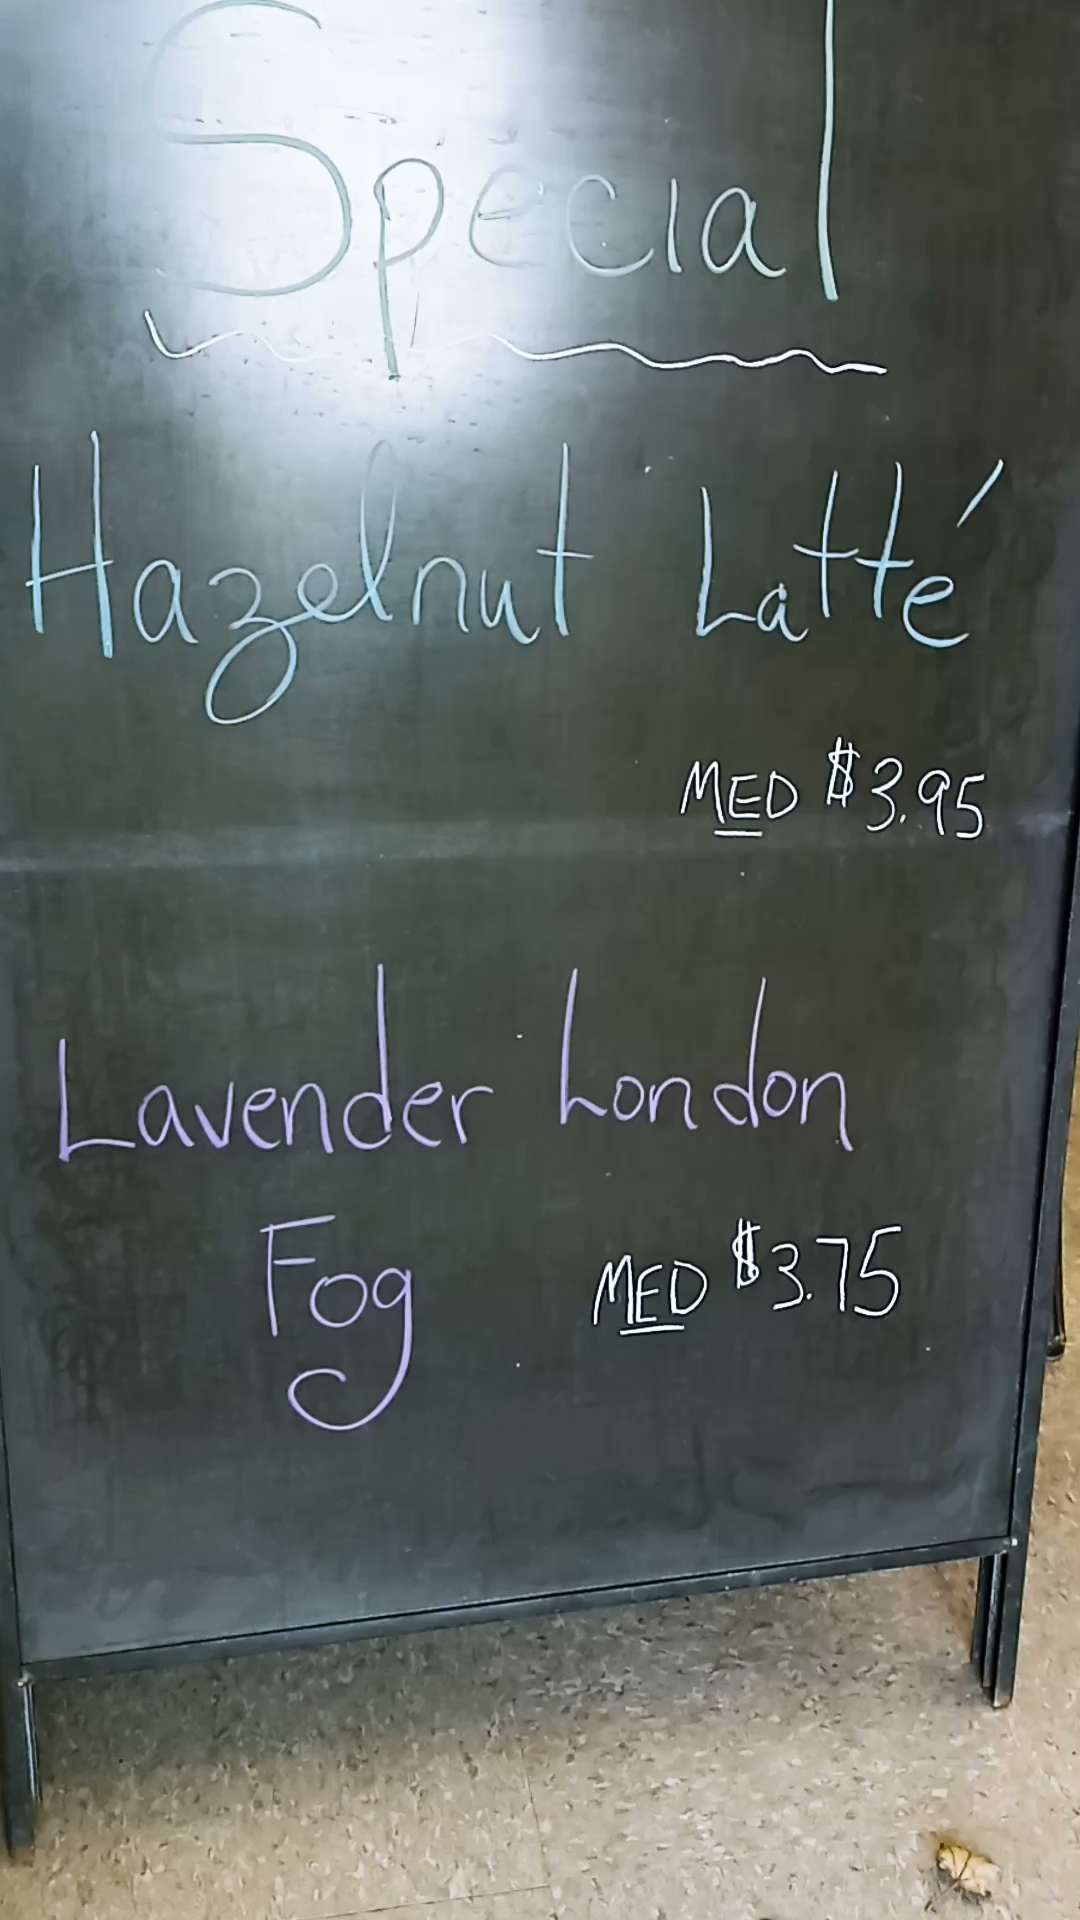 Special
Hazelnut Latté
MED $3.95
Lavender London
Fog MED $3.75